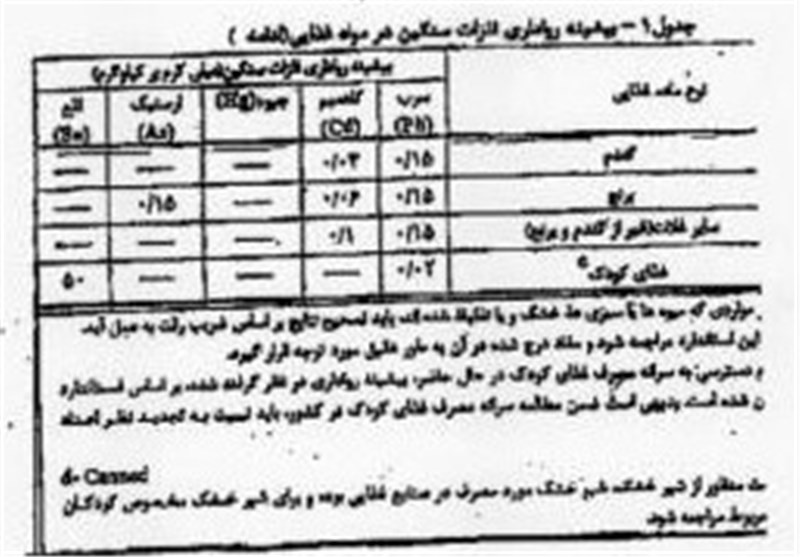 جدول ۱ – بیشینه رواداری فلزات سنگین در مواد غذایی (ادامه )
نوع ماده غذایی
بیشینه رواداری فلزات سنگین (میلی گرم بر کیلوگرم)
سرب (Pb) کادمیم (Cd) جیوه (Hg) ارسنیک (As) قلع (Sn)
گندم ۰/۱۵ ۰/۰۳ — — —
برنج ۰/۱۵ ۰/۰۶ — ۰/۱۵ —
سایر غلات (غیر از گندم و برنج) ۰/۱۵ ۰/۱ — — —
غذای کودک ۰/۰۲ — — — ۵۰
مواردی که میوه ها یا سبزی ها، خشک و یا تغلیظ شده اند، باید تصحیح نتایج بر اساس ضریب رقت به عمل آید.
این استاندارد مراجعه شود و مفاد درج شده در آن به طور دقیق مورد توجه قرار گیرد.
دسترسی به سرانه مصرف غذای کودک در حال حاضر، بیشینه رواداری در نظر گرفته شده، بر اساس استاندارد
شده است. بدیهی است ضمن مطالعه سرانه مصرف غذای کودک در کشور، باید نسبت به تجدید نظر اعداد
d- Canned
منظور از شیر خشک، شیر خشک مورد مصرف در صنایع غذایی بوده و برای شیر خشک مخصوص کودکان
مربوط مراجعه شود.